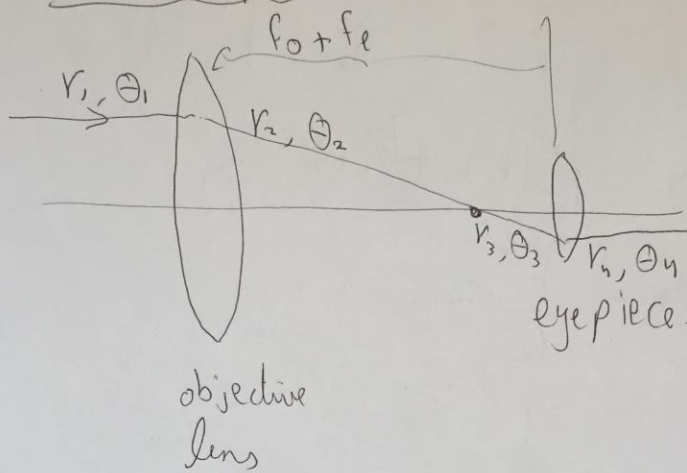 fo + fe
r₁, θ₁
r₂, θ₂
r₃, θ₃
r₄, θ₄
eyepiece.
objective
lens